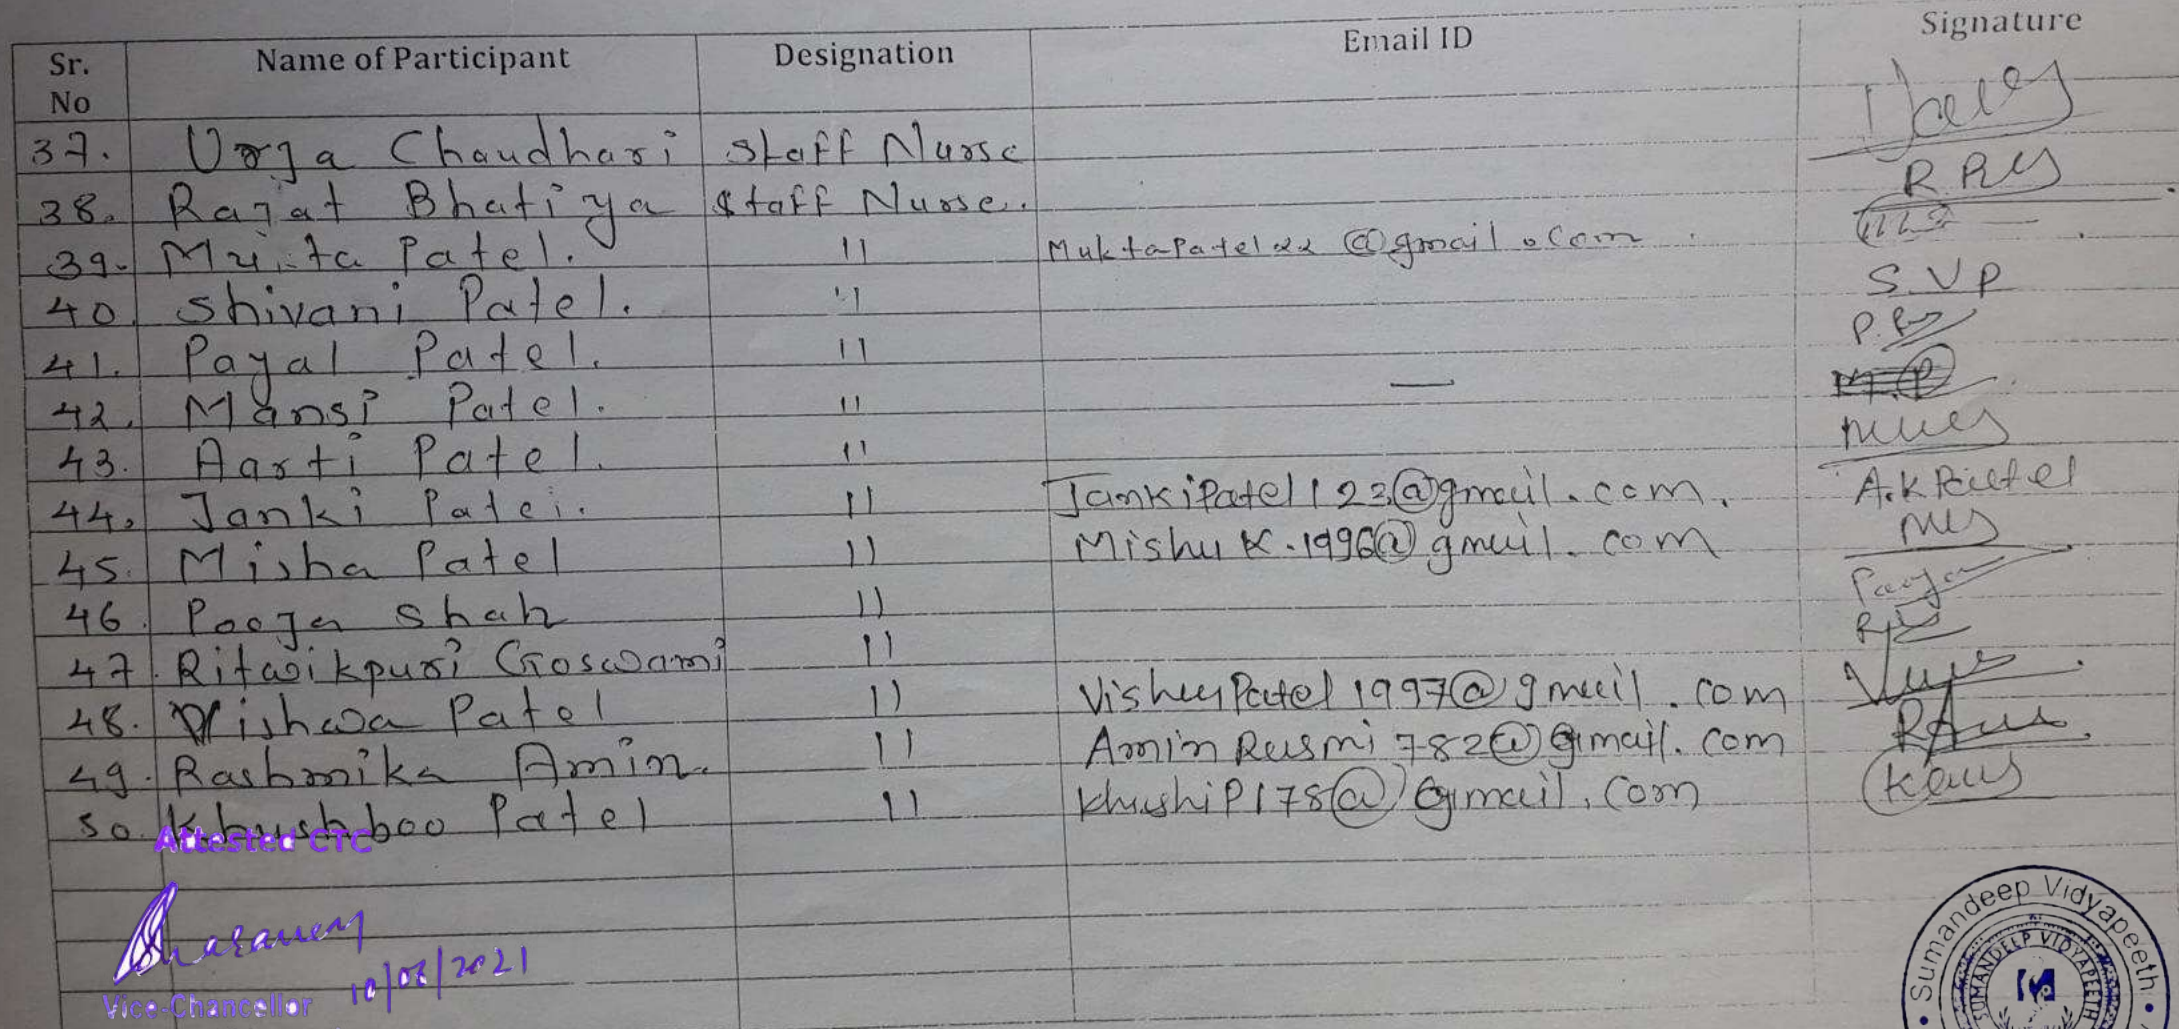 Sr. No Name of Participant Designation Email ID Signature
37. Urja Chaudhari Staff Nurse
38. Rajat Bhatiya Staff Nurse. R
39. Patel. " MuktaPatel22@gmail.com
40 Shivani Patel. " S.V.P
41. Payal Patel. " P.
42. Mansi Patel. " —
43. Aarti Patel. "
44. Janki Patel. " JankiPatel123@gmail.com. A.K Patel
45. Misha Patel " MishuK.1996@gmail.com
46. Pooja Shah " Pooja
47. Ritwikpuri Goswami "
48. Vishwa Patel " VishuPatel1997@gmail.com
49. Rashmika Amin. " AminRusmi782@gmail.com
50. Khushboo Patel " khushiP178@gmail.com
Attested CTC
Vice-Chancellor 10/08/2021
Sumandeep Vidyapeeth
SUMANDEEP VIDYAPEETH